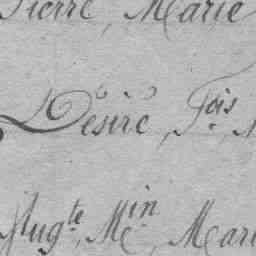 Pierre, Marie
Désiré, Fois.
Augte, Min. Mari